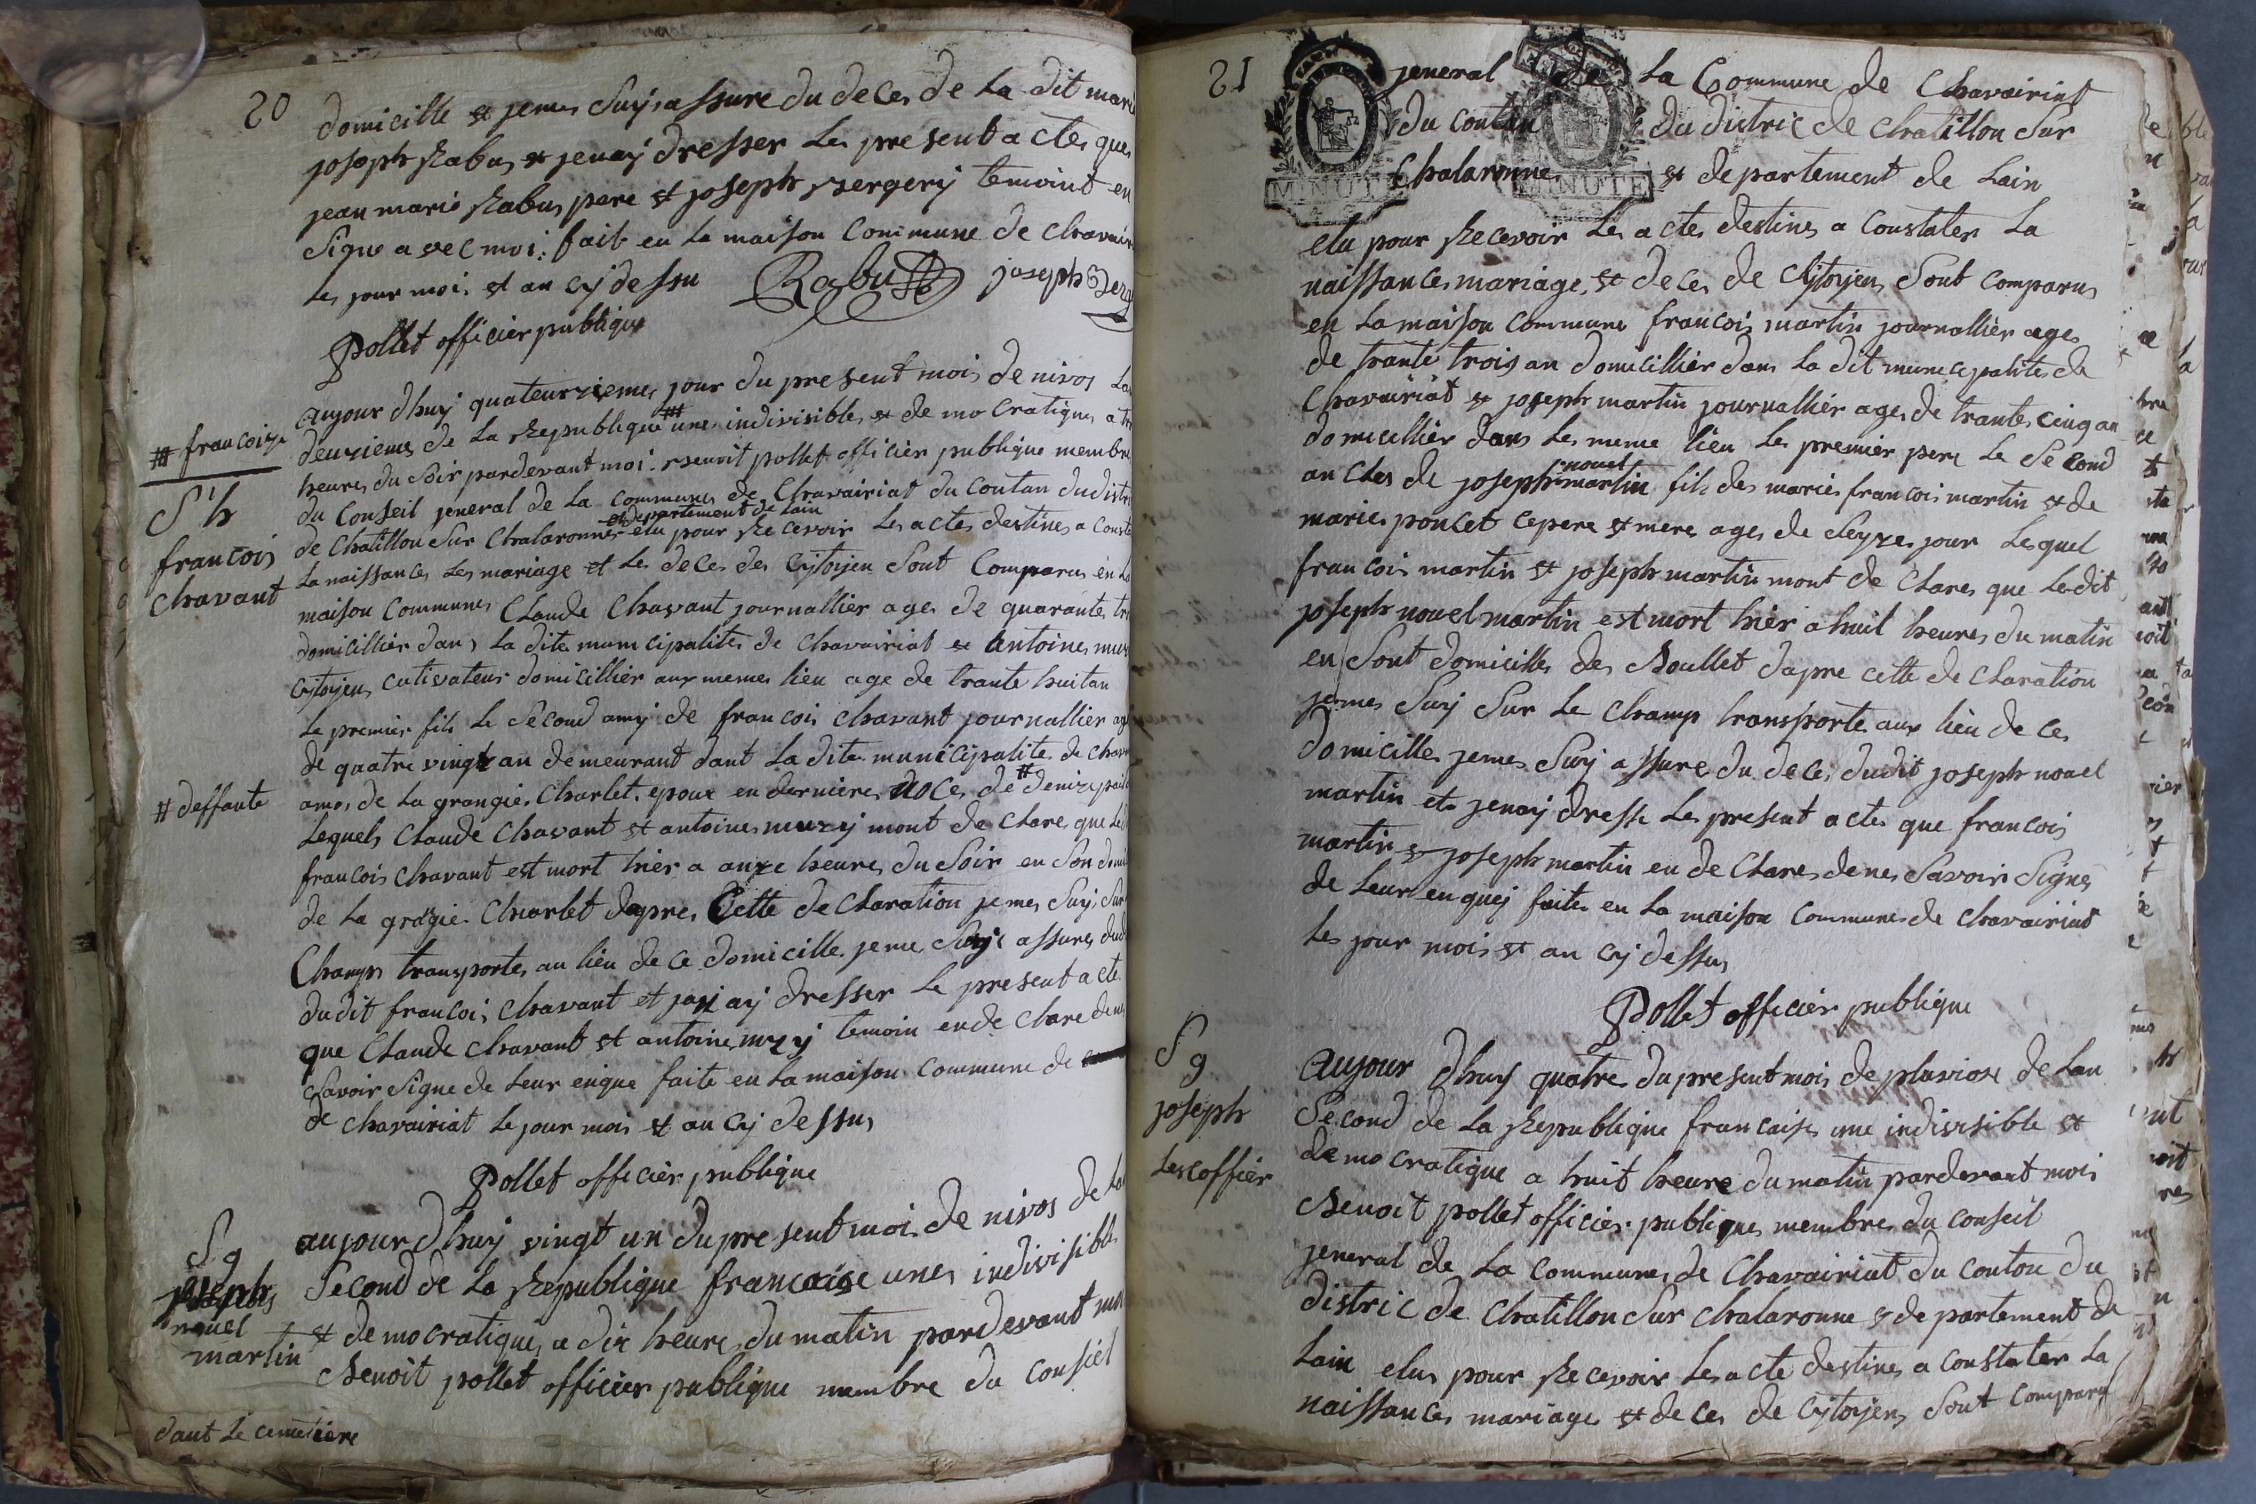 20
domicille et jemes suy assure du deces de La dit marie
joseph Rabus et jenay dresser Les present actes que
jean marie Rabus pere et joseph Bergery temoint en
signe avec moi: fait en La maison Commune de
Les jour mois et an cy dessu Rabu joseph
Pollet officier publique
aujourdhuy quateurziemes jour du present mois de nivos
# francoize
deuzieme de La Republique # une indivisibles et de mo cratiques a
heures du soir pardevant moi Benoit pollet officier publique membre
du Conseil jeneral de La Communes de Chavairiat du Coutan du
de Chatillon sur Chalaronnes et departement de Lain elu pour Recevoir Les actes destines a
La naissances Les mariage et Les deces des Cytoyen sont Comparus en
S h
francois
Chavant
maison Communes Claude Chavant journallier ages de quarante
domicillier dans La dite municipalites de Chavairiat et antoines
Cytoyens cutivateur domicillier aux memes lieu age de trante huit an
Le premier fils Le second amy de francois Chavant journallier
de quatre vingt an demeurant dant La dite municipalite de
ames de La grangies Charlet epoux en dernieres noces de # denize
# deffante
Lequels Claude Chavant et antoines muzy mont de Clare que
francois Chavant est mort hier a onze heures du soir en son
de La grazie Charlet dapres Cette de Claration jemes suy sur
Champs transportes au lieu de ce domicille jeme suys assures
dudit francois Chavant et jen ay dresser Le present acte
que Claude Chavant et antoines muzy temoin ende Clare de
savoir signe de Leur enque faite en La maison Commune de
de Chavairiat Le jour mois et an cy dessus
Pollet officier publique
S g
joseph
nouel
martin
aujourdhuy vingt un du present mois de nivos de
second de La Republique francaise unes indivisible
et de mo cratiques a dix heures du matin pardevant
Benoit pollet officier publique membre du Conseil
dant Le cemetiere
21
jeneral de La Commune de Chavairiat
du Coutan du distric de Chatillon sur
Chalaronne et departement de Lain
MINUTE MINUTE
elu pour Recevoir Les actes destines a Constater La
naissances mariages et deces de Cytoyens sont Comparus
en La maison Commune francois martin journallier ages
de trante trois an domicillier dans La dit municipalites de
Chavairiat et joseph martin journallier ages de trantes cinq an
domicillier dans Les meme lieu Les premier pere Le second
an Cles de joseph nouel martin fils des maries francois martin et de
maries poncet cepere et mere ages de seyzes jour Lequel
francois martin et joseph martin mont de Clares que Ledit
joseph nouel martin est mort hier a huit heures du matin
en sont domicilles des Boullet dapre cette de Claration
jemes suy sur Le Champ transporte aux lieu de ces
domicilles jemes suy assures du deces dudit joseph nouel
martin et jenay dresse Les present actes que francois
martin et joseph martin en de Clares denes savoir signes
de Leur enquej faites en La maison Communes de Chavairiat
Les jour mois et an cy dessus
Pollet officier publique
S g
joseph
Lescoffier
aujourdhuy quatres du present mois de pluviose de Lan
second de La Republique francaise une indivisible et
de mo cratique a huit heure du matin pardevant moi
Benoit pollet officier publiques membres du Conseil
jeneral de La Communes de Chavairiat du Coutou du
distric de Chatillon sur Chalaronne et departement de
Lain elus pour Recevoir Les acte destines a Constater La
naissances mariages et deces de Cytoyens sont Comparu